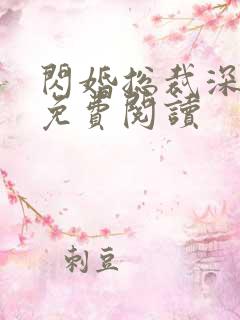 閃婚總裁深
免費閱讀
刺豆